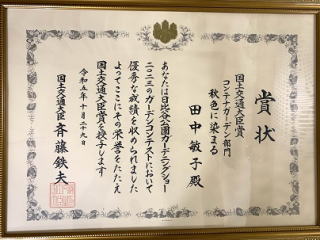 賞状
国土交通大臣賞
コンテナガーデン部門
秋色に染まる
田中敏子殿
あなたは日比谷公園ガーデニングショー
二〇二三のガーデンコンテストにおいて
優秀な成績を収められました
よってここにその栄誉をたたえ
国土交通大臣賞を授与します
令和五年十月二十九日
国土交通大臣 斉藤鉄夫